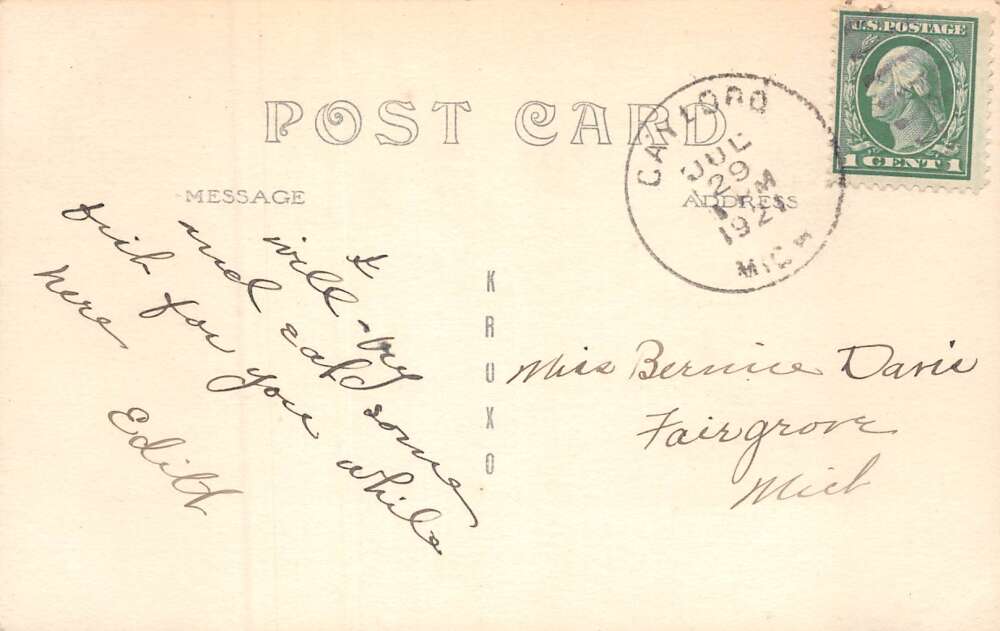 POST CARD
MESSAGE
ADDRESS
U.S. POSTAGE
1 CENT 1
JUL
29
PM
192
MICH
K R U X O
I
will try
and eat some
fish for you while
here
Edith
Miss Bernice Davis
Fairgrove
Mich